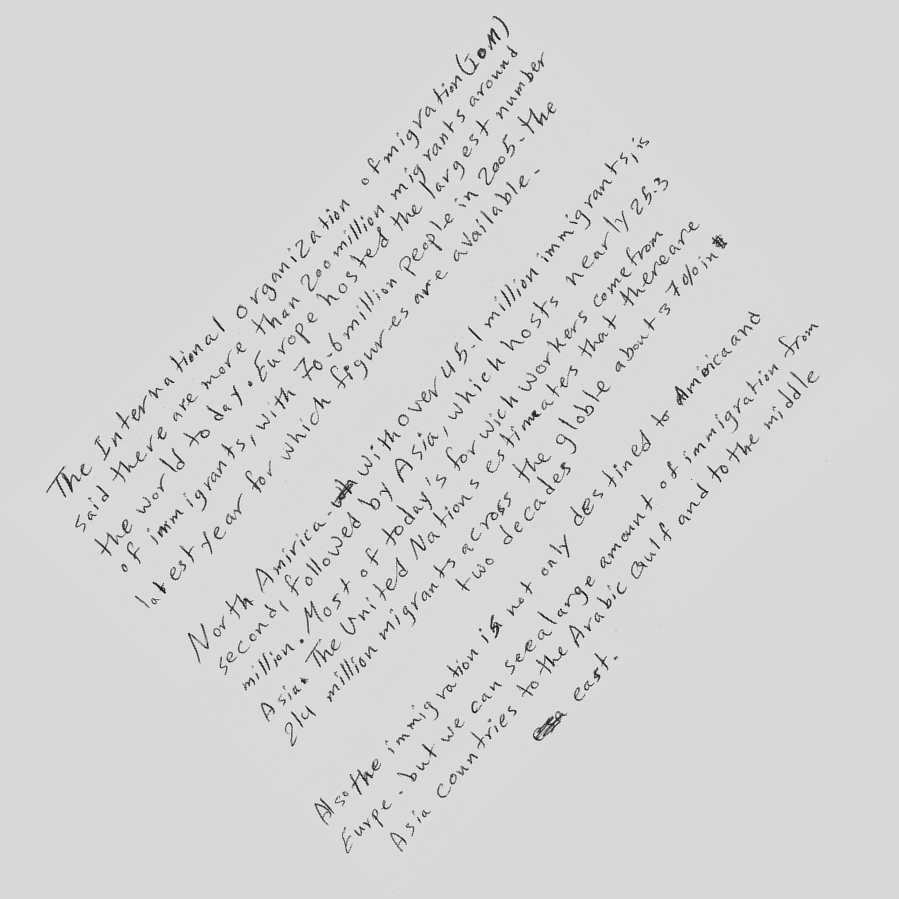 The International organization of migration (IOM)
said there are more than 200 million migrants around
the world to day. Europe hosted the largest number
of immigrants, with 70-6 million people in 2005-the
latest year for which figur-es are available-
North Amirica - with over 45-1 million immigrants, is
second, followed by Asia, which hosts nearly 25.3
million. Most of today's for wich workers come from
Asia. The United Nations estimates that there are
214 million migrants across the globle about 37% in
two decades
Also the immigration is not only destined to America and
Eurpe- but we can see a large amount of immigration from
Asia countries to the Arabic Gulf and to the middle
east.